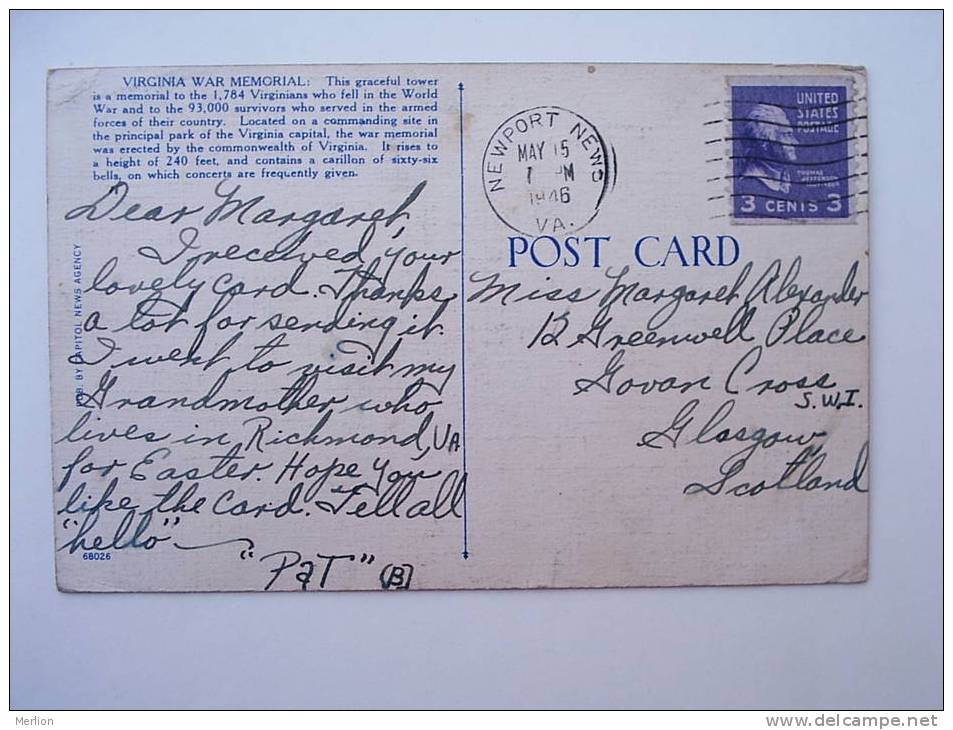 VIRGINIA WAR MEMORIAL: This graceful tower
is a memorial to the 1,784 Virginians who fell in the World
War and to the 93,000 survivors who served in the armed
forces of their country. Located on a commanding site in
the principal park of the Virginia capital, the war memorial
was erected by the commonwealth of Virginia. It rises to
a height of 240 feet, and contains a carillon of sixty-six
bells, on which concerts are frequently given.
Dear Margaret,
I received your
lovely card. Thanks
a lot for sending it.
I went to visit my
Grandmother who
lives in Richmond, VA
for Easter. Hope you
like the card. Tell all
"hello"
"Pat" (B)
68026
PUB. BY CAPITOL NEWS AGENCY
NEWPORT NEWS
MAY 15
PM
1946
VA.
UNITED
STATES
POSTAGE
THOMAS
JEFFERSON
3 CENTS 3
POST CARD
Miss Margaret Alexander
12 Greenwell Place
Govan Cross
S.W.I.
Glasgow,
Scotland
Merlion
http://www.delcampe.net